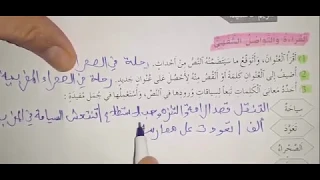 القراءة والتواصل الشفهي
1 أقرأ العنوان، وأتوقع ما سيتضمنه النص من أحداث. رحلة في الصحر
2 أضيف إلى العنوان كلمة أو أكثر منه لأحصل على عنوان جديد. رحلة في الصحراء المغربية
3 أحدد معاني الكلمات تبعا لسياقات ورودها في النص، وأستعملها في جمل مفيدة:
سياحة التنقل قصد الراحة والتنزه وحب الاستطلاع / تنتعش السياحة في المغرب
تعود ألف / تعودت على ممارسة
الصحراء